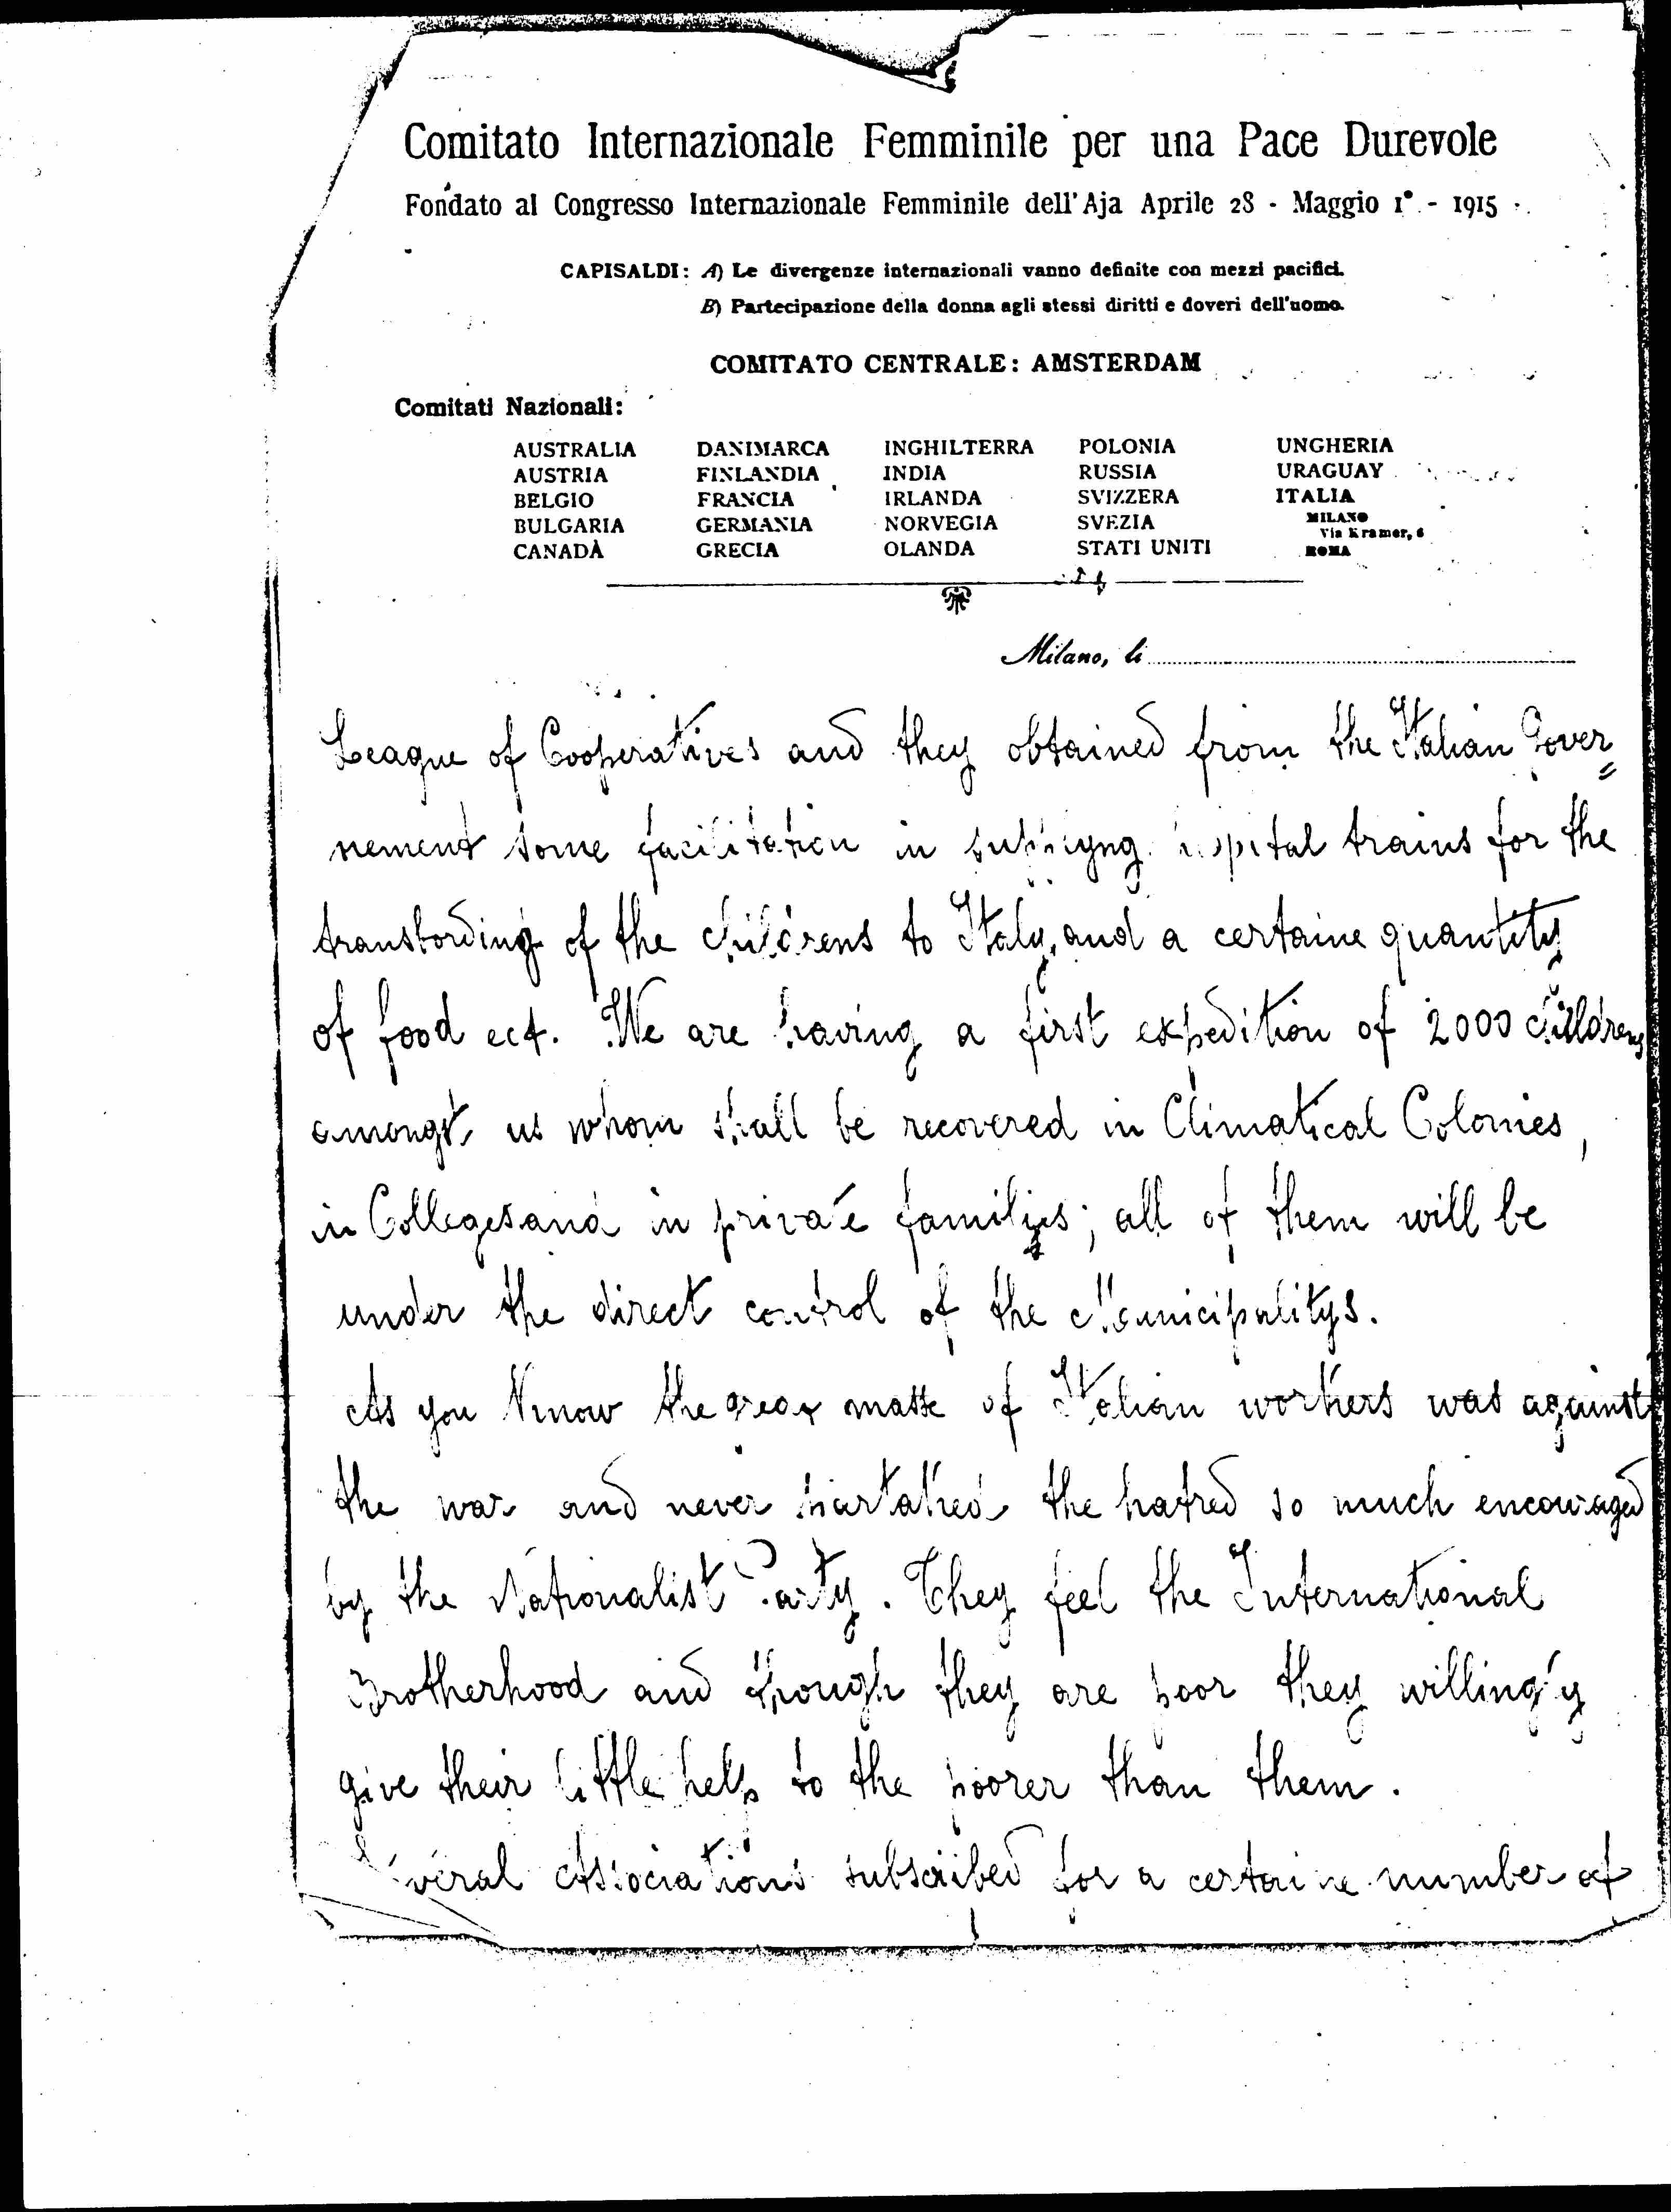 Comitato Internazionale Femminile per una Pace Durevole
Fondato al Congresso Internazionale Femminile dell'Aja Aprile 28 - Maggio 1° - 1915
CAPISALDI: A) Le divergenze internazionali vanno definite con mezzi pacifici.
B) Partecipazione della donna agli stessi diritti e doveri dell'uomo.
COMITATO CENTRALE: AMSTERDAM
Comitati Nazionali:
AUSTRALIA DANIMARCA INGHILTERRA POLONIA UNGHERIA
AUSTRIA FINLANDIA INDIA RUSSIA URAGUAY
BELGIO FRANCIA IRLANDA SVIZZERA ITALIA
BULGARIA GERMANIA NORVEGIA SVEZIA MILANO
Via Kramer, 6
CANADÀ GRECIA OLANDA STATI UNITI ROMA
Milano, li
League of Cooperatives and they obtained from the Italian Gover=
nement some facilitation in supplyng hospital trains for the
transbording of the childrens to Italy, and a certaine quantity
of food ect. We are having a first expedition of 2000 childrens
amongst us whom shall be recovered in Climatical Colonies,
in Colleges and in private families; all of them will be
under the direct control of the Municipalitys.
As you know the great masse of Italian workers was against
the war and never partaked the hatred so much encouraged
by the Nationalist Party. They feel the International
Brotherhood and though they are poor they willingly
give their little help to the poorer than them.
Several Associations subscribed for a certaine number of